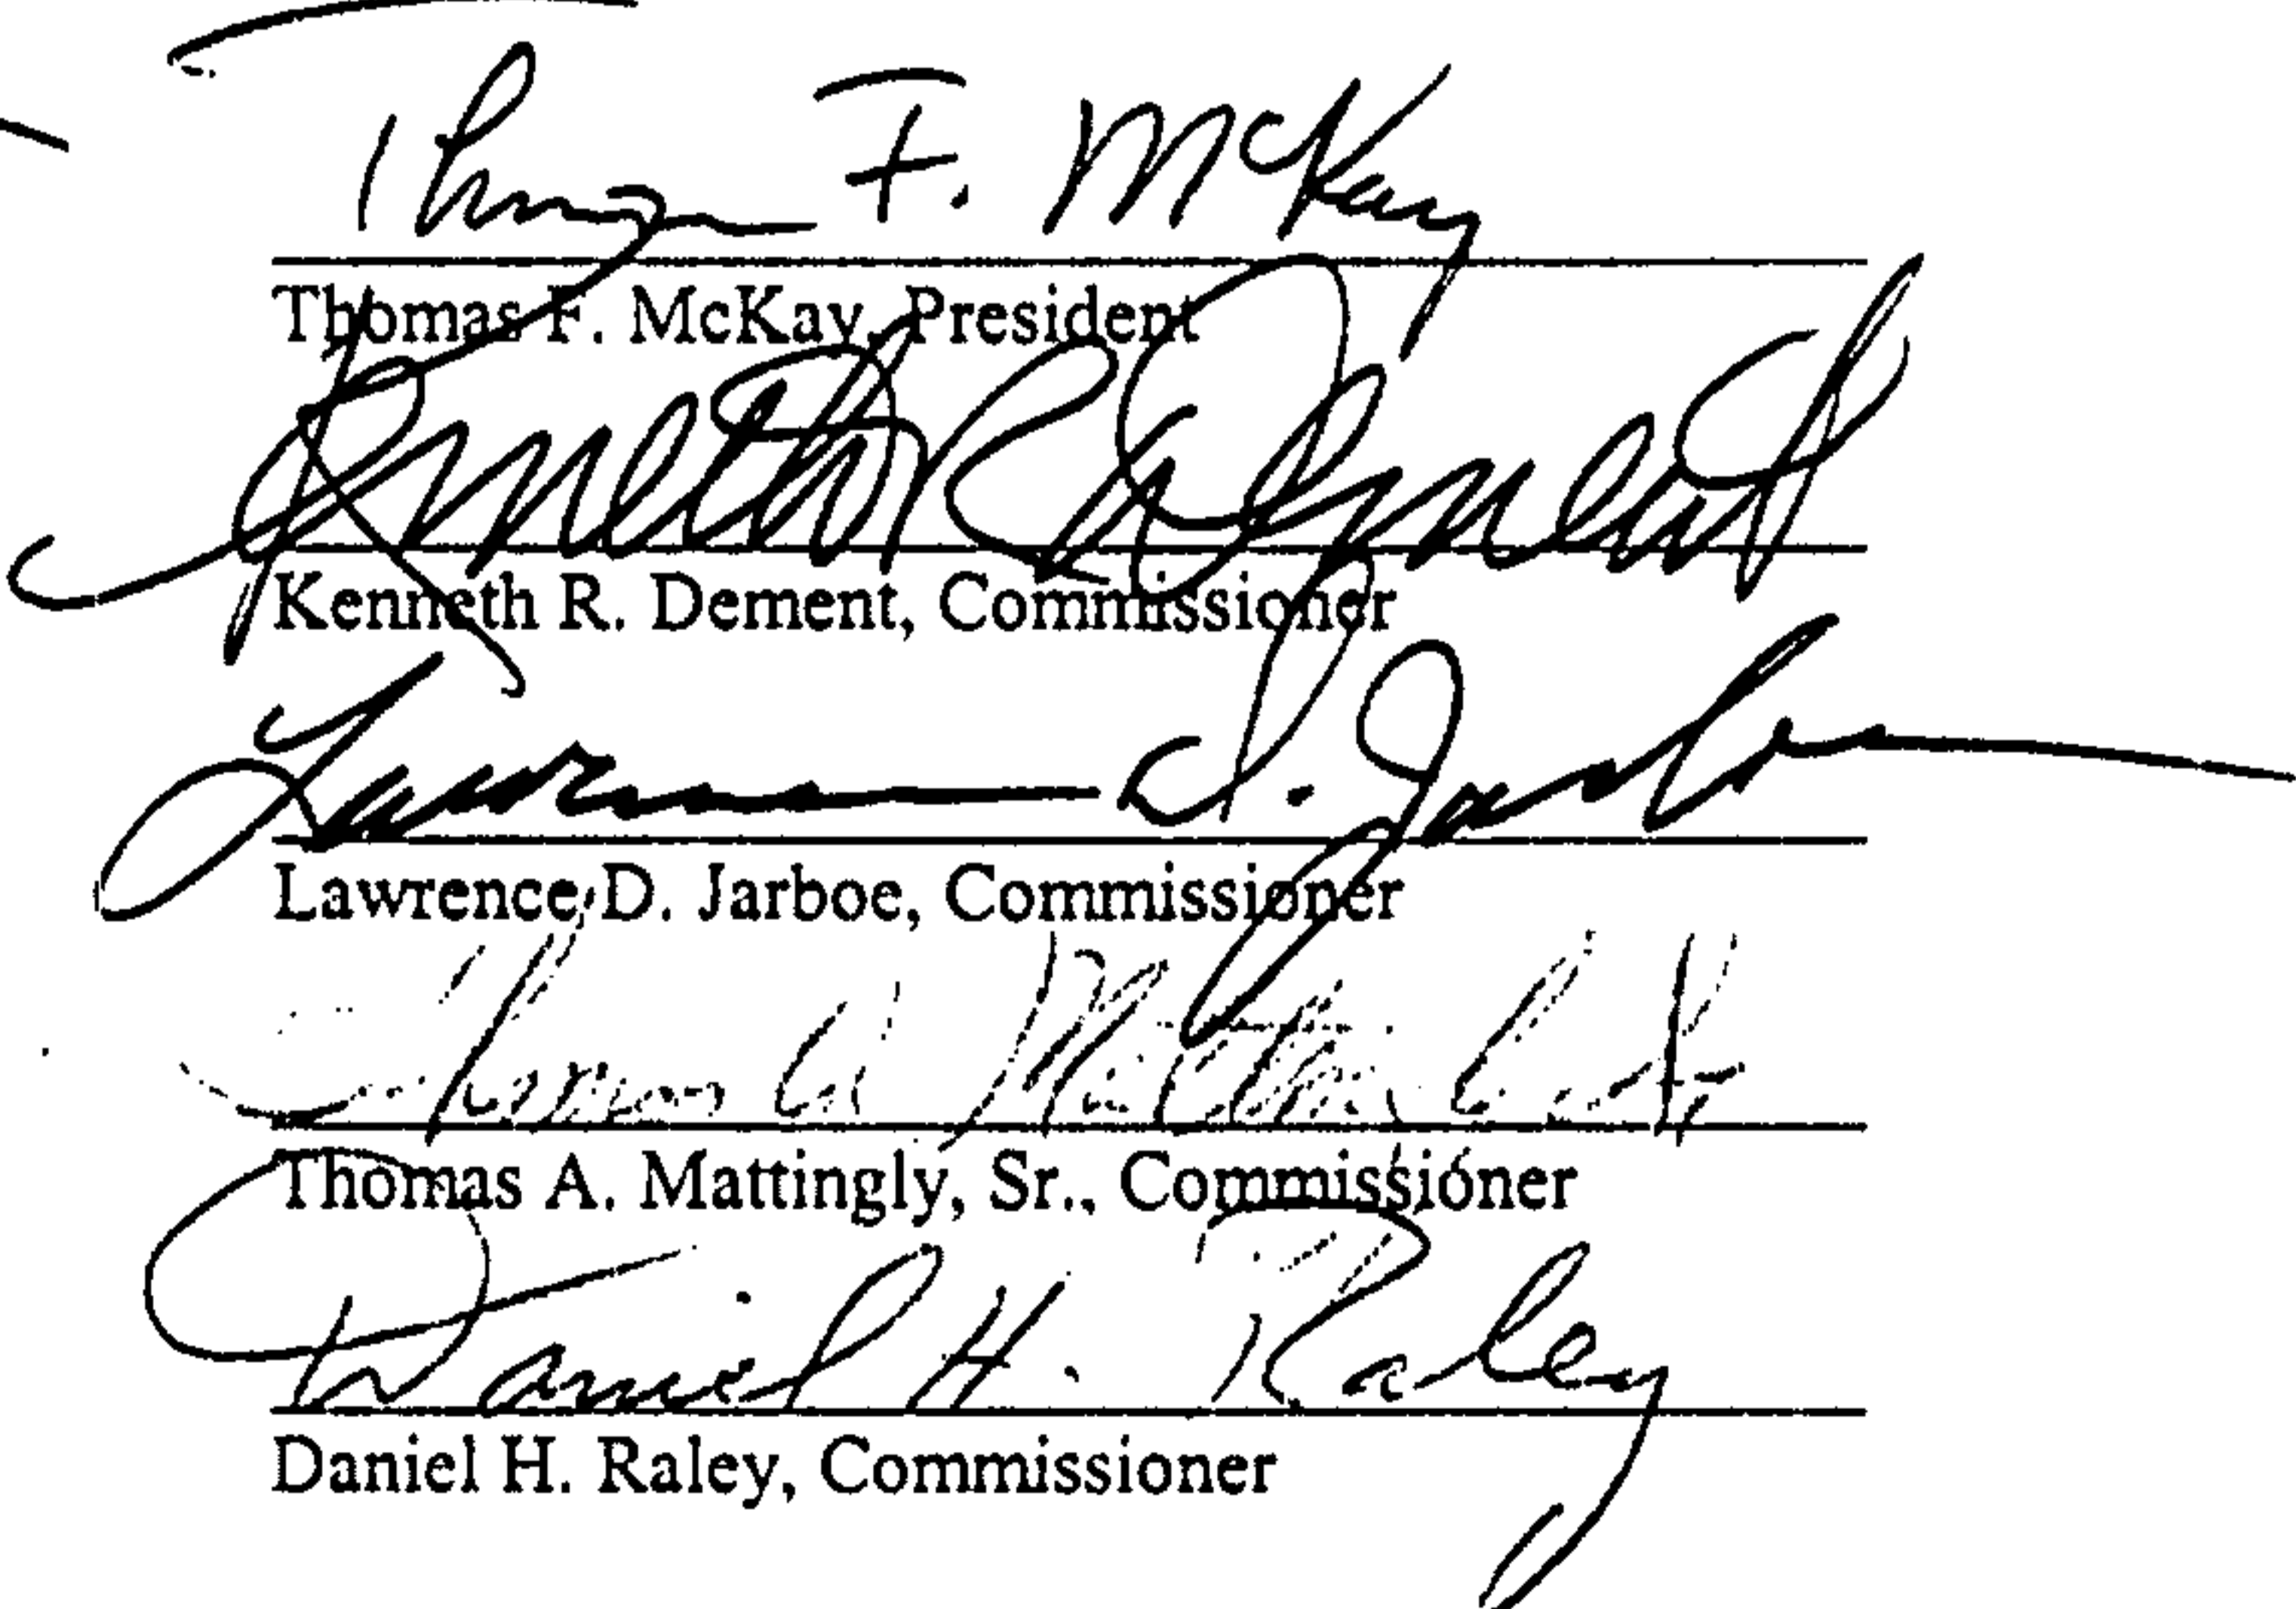 Thomas F. McKay
Thomas F. McKay, President
Kenneth R. Dement
Kenneth R. Dement, Commissioner
Lawrence D. Jarboe
Lawrence D. Jarboe, Commissioner
Thomas A. Mattingly, Sr., Commissioner
Daniel H. Raley
Daniel H. Raley, Commissioner